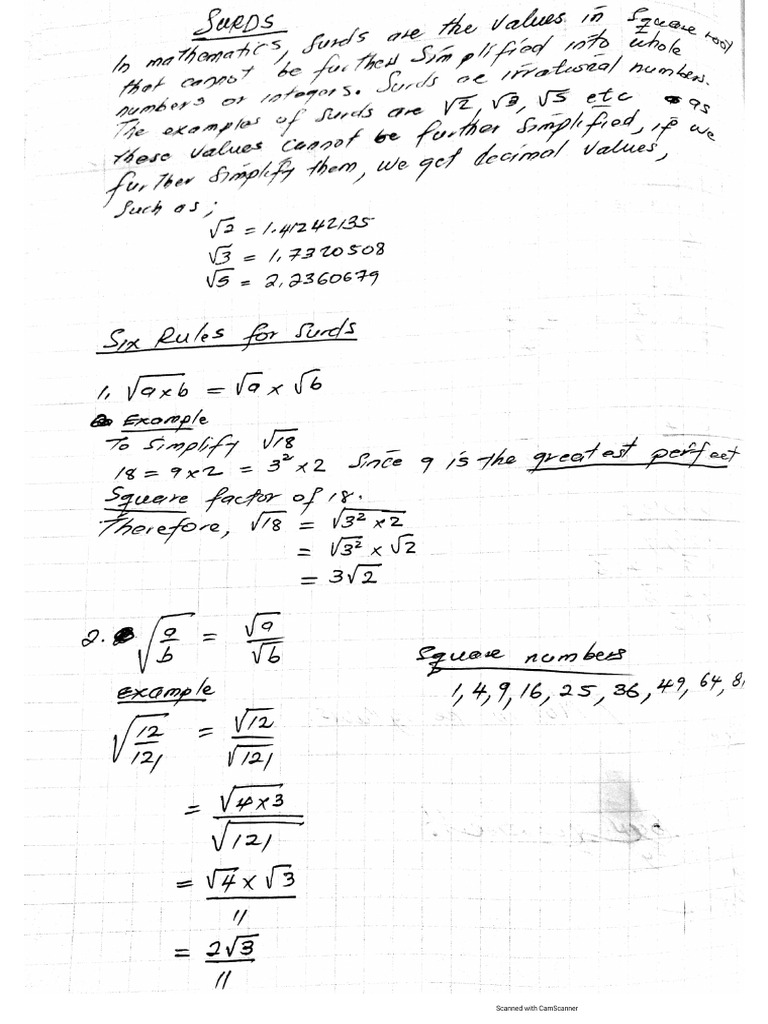 SURDS
In mathematics, surds are the values in square root
that cannot be further simplified into whole
numbers or integers. Surds are irrational numbers.
The examples of surds are √2, √3, √5 etc as
these values cannot be further simplified, if we
further simplify them, we get decimal values,
such as;
√2 = 1.41242135
√3 = 1.7320508
√5 = 2.2360679
Six Rules for Surds
1. √a×b = √a × √b
Example
To simplify √18
18 = 9×2 = 3² × 2 Since 9 is the greatest perfect
square factor of 18.
Therefore, √18 = √3² × 2
= √3² × √2
= 3√2
2. √a/b = √a/√b
Square numbers
1, 4, 9, 16, 25, 36, 49, 64, 81
Example
√12/121 = √12/√121
= √4×3/√121
= √4 × √3/11
= 2√3/11
Scanned with CamScanner